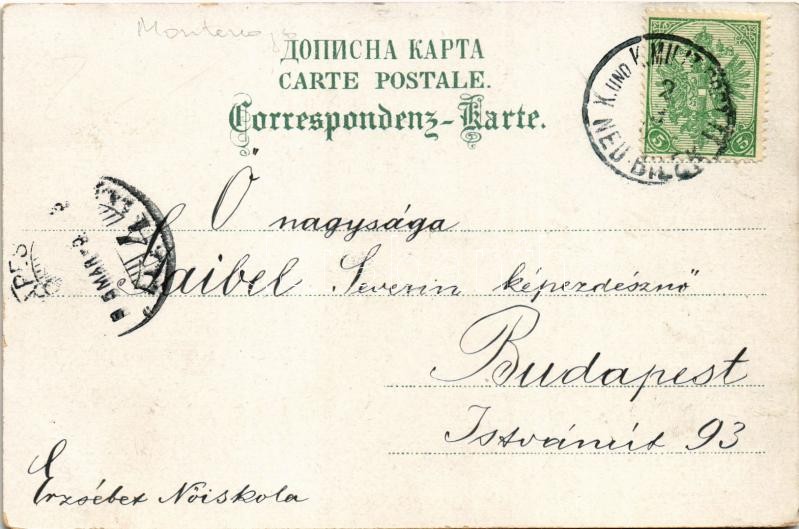 ДОПИСНА КАРТА
CARTE POSTALE.
Correspondenz-Karte.
K. UND K. MILIT. POST
NEU-BILEK
2
5 5
Ő nagysága
Saibel Severin képezdésznő
Budapest
Istvánút 93
Erzsébet Nőiskola